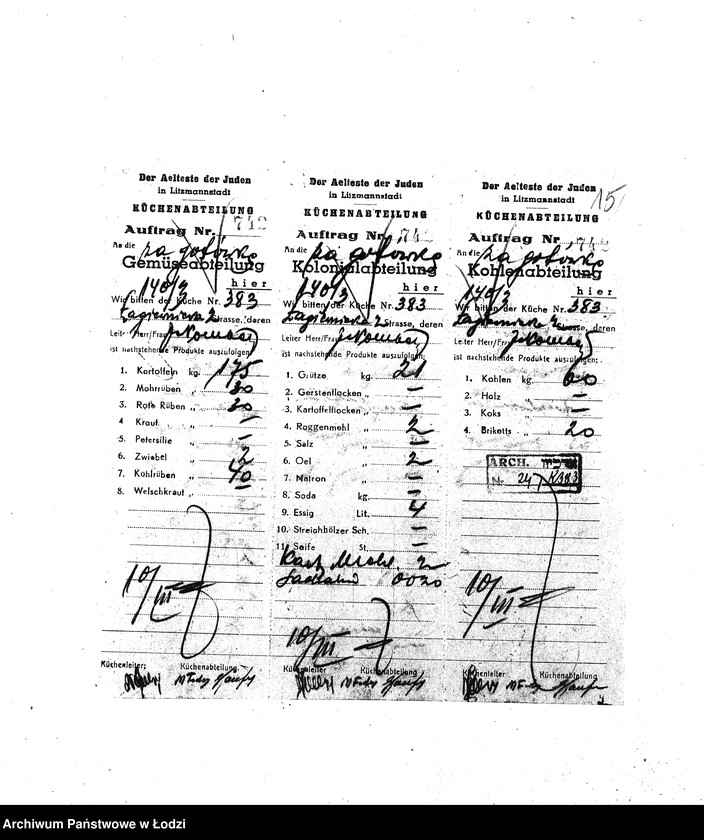 15
Der Aelteste der Juden
in Litzmannstadt
KÜCHENABTEILUNG
Auftrag Nr. 742
An die za gotówkę
Gemüseabteilung
140/3 hier
Wir bitten der Küche Nr. 383
Łagiewnicka 2 Strasse, deren
Leiter Herr/Frau
ist nachstehende Produkte auszufolgen:
1. Kartoffeln kg. 175
2. Mohrrüben „ 30
3. Rote Rüben „ 30
4 Kraut „ —
5. Petersilie „ —
6. Zwiebel „ 2
7. Kohlrüben „ 40
8. Welschkraut „ —
10/III
Küchenleiter: Küchenabteilung.
Der Aelteste der Juden
in Litzmannstadt
KÜCHENABTEILUNG
Auftrag Nr. 742
An die za gotówkę
Kolonialabteilung
140/3 hier
Wir bitten der Küche Nr. 383
Łagiewnicka 2 Strasse, deren
Leiter Herr/Frau
ist nachstehende Produkte auszufolgen:
1. Grütze kg. 21
2. Gerstenflocken „ —
3. Kartoffelflocken „ —
4. Roggenmehl „ 2
5- Salz „ —
6. Oel „ 2
7. Natron „ —
8. Soda kg. —
9. Essig Lit. 4
10. Streichhölzer Sch. —
11. Seife St. —
Kart. Mehl. 2
0020
10/III
Küchenleiter Küchenabteilung.
Der Aelteste der Juden
in Litzmannstadt
KÜCHENABTEILUNG
Auftrag Nr. 742
An die za gotówkę
Kohlenabteilung
140/3 hier
Wir bitten der Küche Nr. 383
Łagiewnicka 2 Strasse, deren
Leiter Herr/Frau
ist nachstehende Produkte auszufolgen:
1. Kohlen kg. 60
2. Holz „ —
3. Koks „ —
4. Briketts „ 20
ARCH.
N. 247
10/III
Küchenleiter Küchenabteilung
Archiwum Państwowe w Łodzi